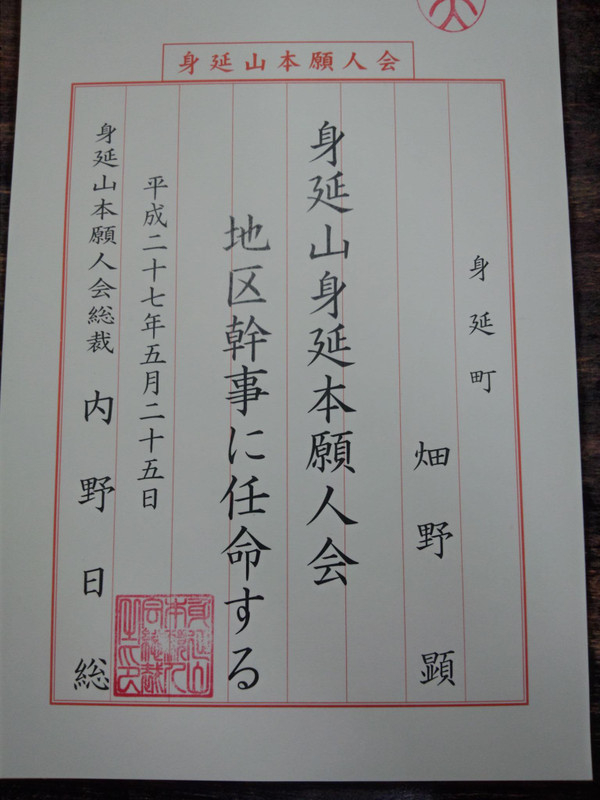 身延山本願人会
身延町
畑野 顕
身延山身延本願人会
地区幹事に任命する
平成二十七年五月二十五日
身延山本願人会総裁 内野日総